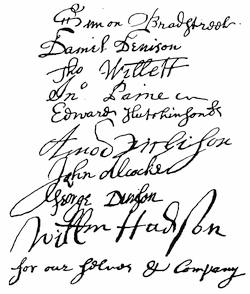 Simon Bradstreet.
Daniel Denison
Tho Willett
Jno Paine
Edward Hutchinson
Amos Richison
John Alcocke
George Denison
Willm Hudson
for our selves & Company